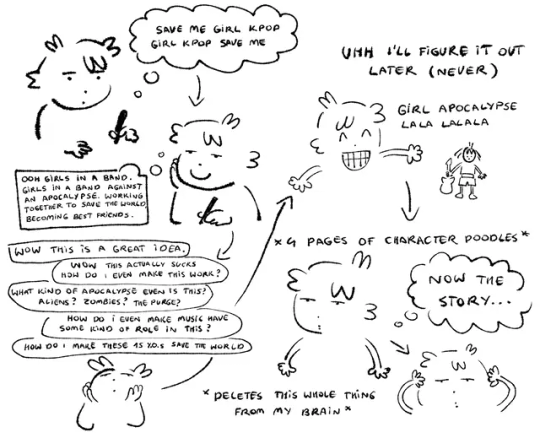 SAVE ME GIRL KPOP
GIRL KPOP SAVE ME
OOH GIRLS IN A BAND.
GIRLS IN A BAND AGAINST
AN APOCALYPSE. WORKING
TOGETHER TO SAVE THE WORLD,
BECOMING BEST FRIENDS.
WOW THIS IS A GREAT IDEA.
WOW THIS ACTUALLY SUCKS
HOW DO I EVEN MAKE THIS WORK?
WHAT KIND OF APOCALYPSE EVEN IS THIS?
ALIENS? ZOMBIES? THE PURGE?
HOW DO I EVEN MAKE MUSIC HAVE
SOME KIND OF ROLE IN THIS?
HOW DO I MAKE THESE 15 Y.O.S SAVE THE WORLD
UHH I'LL FIGURE IT OUT
LATER (NEVER)
GIRL APOCALYPSE
LALA LALALA
*4 PAGES OF CHARACTER DOODLES*
NOW THE
STORY...
*DELETES THIS WHOLE THING
FROM MY BRAIN*